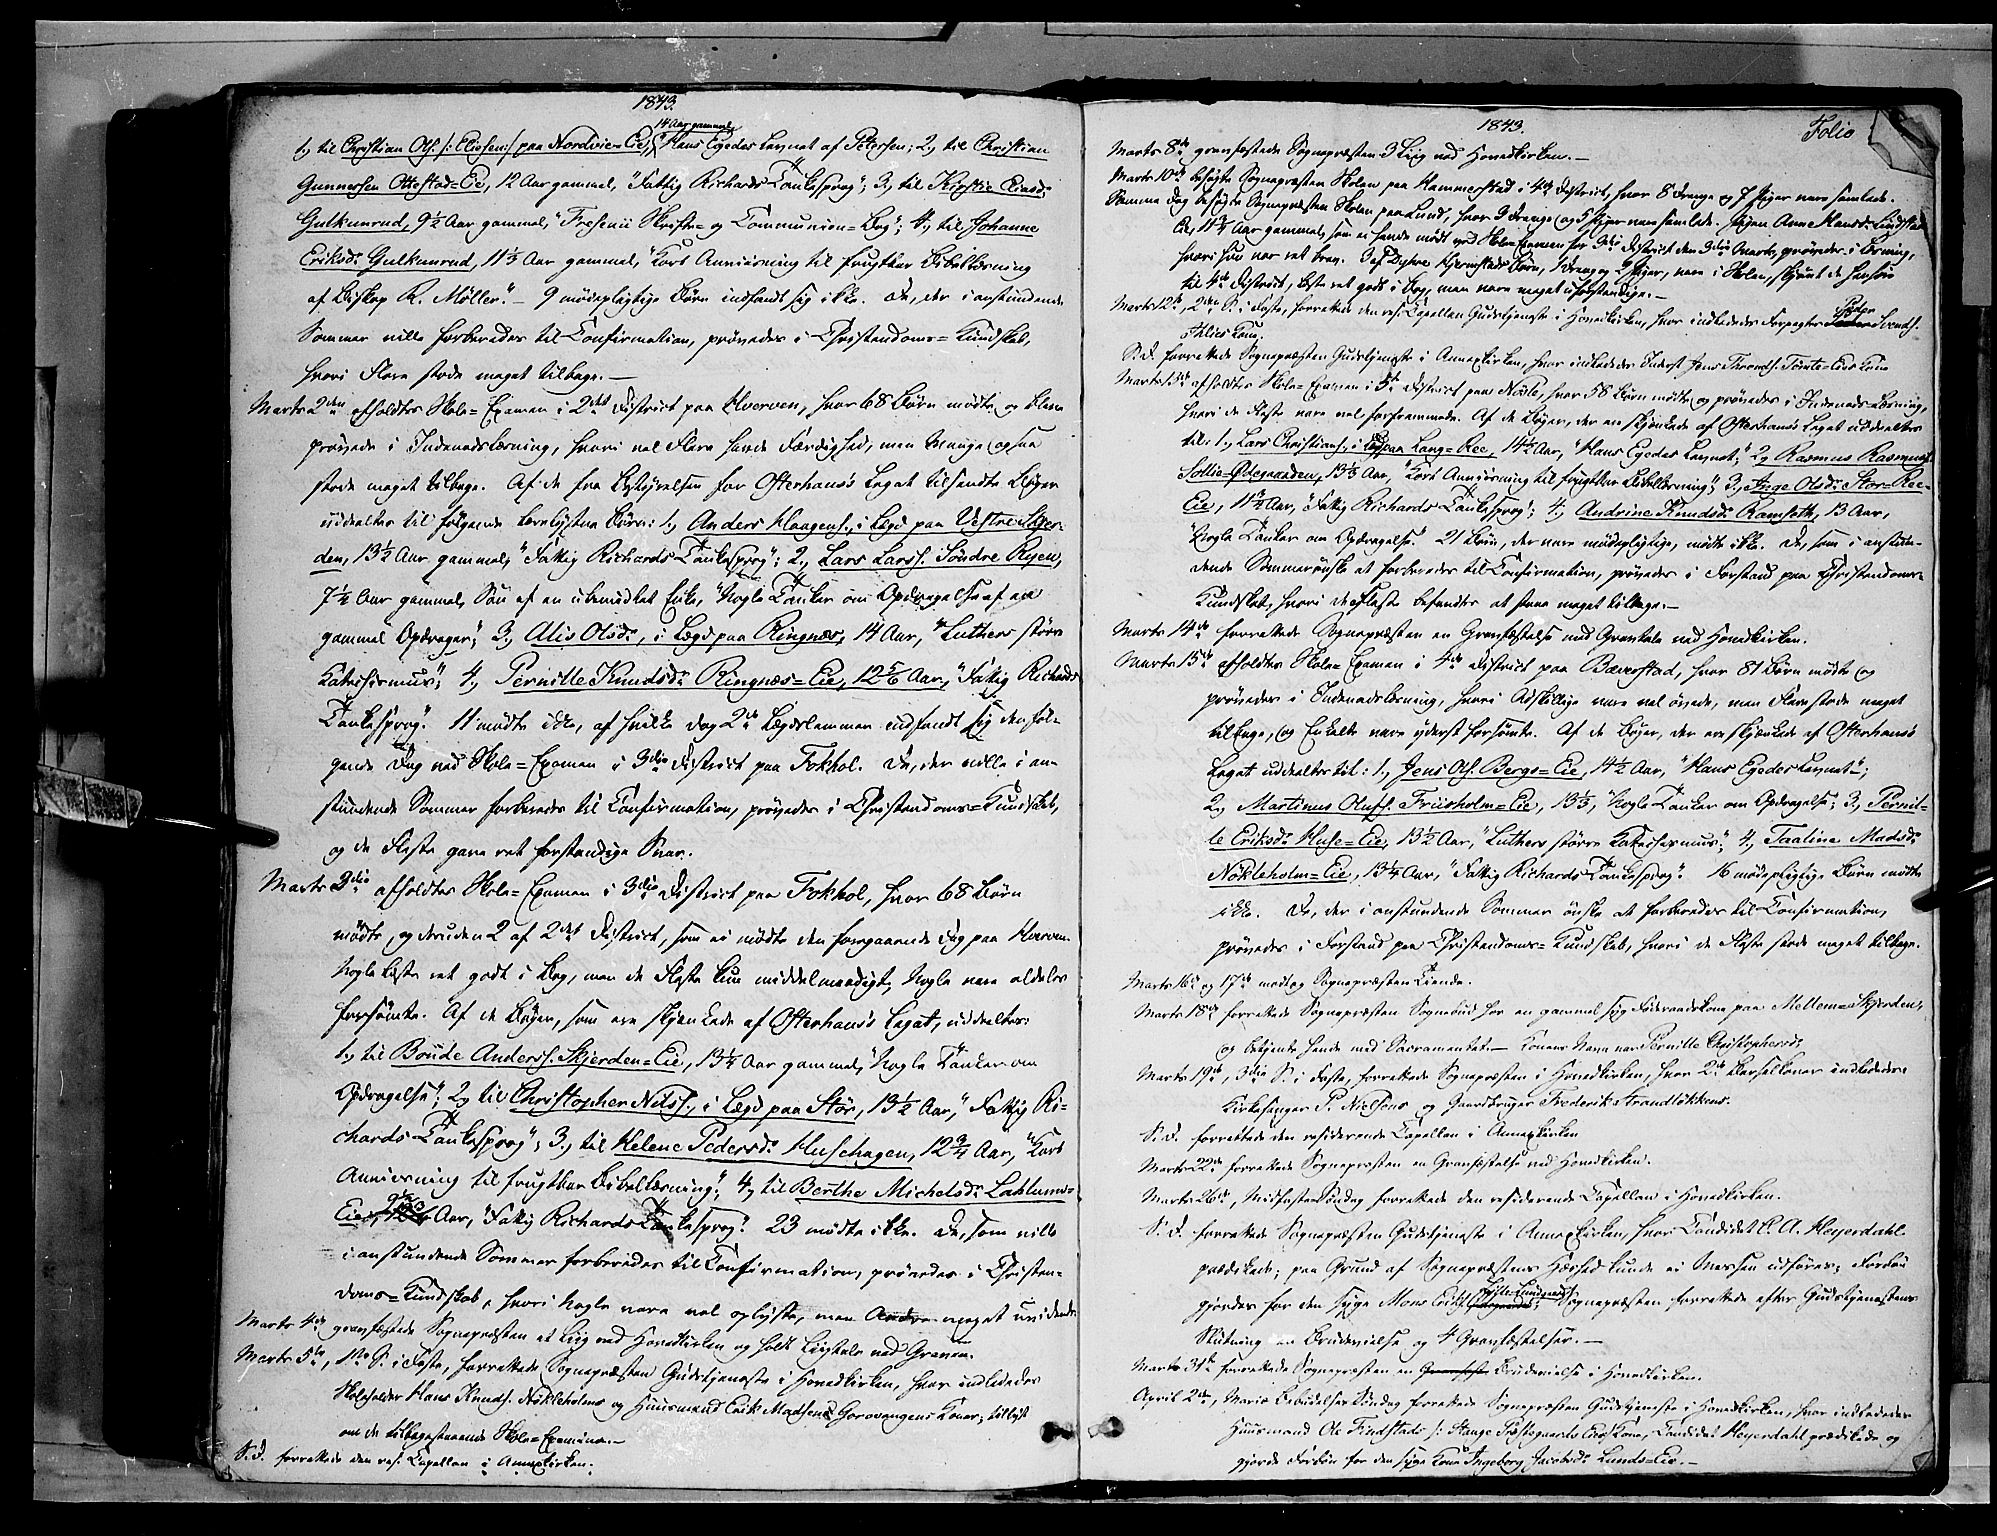 1843.
14 Aar gammel
1, til Christian Ols. /: Eliesen :/ paa Nordvie=Eie, "Hans Egedes Levnet af Petersen; 2, til Christian
Gunnersen Ottestad=Eie, 12 Aar gammel, "Fattig Richards Tankesprog"; 3, til Kirstie Einersd.
Gulkunrud, 9½ Aar gammel, "Fresenii Skrifte= og Communion=Bog"; 4, til Johanne
Eriksd. Gulkunrud, 11⅓ Aar gammel, "Kort Anviisning til frugtbar Bibellæsning
af Biskop R. Møller". – 9 mødepligtige Børn indfandt sig ikke. De, der i anstundende
Sommer ville forberedes til Confirmation, prøvedes i Christendoms=Kundskab,
hvori Flere stode meget tilbage. –
Marts 2den afholdtes Skole=Examen i 2det District paa Hverven, hvor 68 Børn mødte og bleve
prøvede i Indenadslæsning, hvori vel Flere havde Færdighed, men Mange ogsaa
stode meget tilbage. Af de fra Bestyrelsen for Osterhaus's Legat tilsendte Bøger
uddeeltes til følgende lærelystne Børn: 1, Anders Haagens., i Lægd paa Vestre Skjer-
den, 13½ Aar gammel, "Fattig Richards Tankesprog"; 2, Lars Larss. Søndre Ryen,
7½ Aar gammel, Søn af en ubemidlet Enke, "Nogle Tanker om Opdragelse af en
gammel Opdrager"; 3, Alis Olsd., i Lægd paa Ringnæs, 14 Aar, "Luthers større
Katechismus"; 4, Pernille Knudsd. Ringnæs=Eie, 12 5/6 Aar, "Fattig Richards
Tankesprog". 11 mødte ikke, af hvilke dog 2de Lægdslemmer indfandt sig den føl-
gende Dag ved Skole=Examen i 3die District paa Fokhol. De, der ville i an-
stundende Sommer forberedes til Confirmation, prøvedes i Christendoms=Kundskab,
og de Fleste gave ret forstandige Svar.
Marts 3die afholdtes Skole=Examen i 3die District paa Fokhol, hvor 68 Børn
mødte, og desuden 2 af 2det District, som ei mødte den foregaaende Dag paa Hverven.
Nogle læste ret godt i Bog, men de Fleste kun middelmaadigt, Nogle vare aldeles
forsømte. Af de Bøger, som ere skjænkede af Osterhaus's Legat, uddeeltes:
1, til Boude Anderss. Skjerden=Eie, 13¼ Aar gammel, "Nogle Tanker om
Opdragelse"; 2, til Christopher Nilss., i Lægd paa Stør, 13½ Aar, "Fattig Ri-
chards Tankesprog"; 3, til Helene Pedersd. Husehagen, 12¾ Aar, "Kort
Anviisning til frugtbar Bibellæsning"; 4, til Berthe Michelsd. Lahlums-
Eie, Aar, "Fattig Richards Tankesprog". 23 mødte ikke. De, som ville
i anstundende Sommer forberedes til Confirmation, prøvedes i Christen-
doms=Kundskab, hvori Nogle vare vel oplyste, men Andre meget uvidende.
Marts 4de gravfæstede Sognepræsten et Liig ved Hovedkirken og holdt Liigtale ved Graven.
Marts 5te, 1ste S. i Faste, forrettede Sognepræsten Gudstjeneste i Hovedkirken, hvor indlededes
Skoleholder Hans Knuds. Nökleholms og Huusmand Erik Madsens Gorovangens Koner; tillyst
om de tilbagestaaende Skole=Examina. –
S. D. forrettede den res. Capellan i Annexkirken.
1843.
Folio
Marts 8de gravfæstede Sognepræsten 3 Liig ved Hovedkirken. –
Marts 10de besøgte Sognepræsten Skolen paa Hammerstad i 4de District, hvor 8 Drenge og 7 Piger vare samlede.
Samme Dag besøgte Sognepræsten Skolen paa Lund, hvor 3 Drenge og 5 Piger vare samlede. Pigen Anne Hansd. Lundstad
Eie, 11¾ Aar gammel, som ei havde mødt ved Skole=Examen for 3die District den 3die Marts, prøvedes i Læsning,
hvori hun var ret brav. 3 af Dyhre Hjermstads Børn, 1 Dreng og 2 Piger, vare i Skolen, skjønt de henhøre
til 4de District, læste ret godt i Bog, men vare meget uforstandige. –
Marts 12te, 2den S. i Faste, forrettede den res. Capellan Gudstjeneste i Hovedkirken, hvor indlededes Forpagter Peder Svends.
Kone.
S. D. forrettede Sognepræsten Gudstjeneste i Annexkirken, hvor indlededes Inderst Jens Thronds. Tomte=Eies Kone
Marts 13de afholdtes Skole=Examen i 5te District paa Nøsle, hvor 58 Børn mødte og prøvedes i Indenads Læsning,
hvori de Fleste vare vel forfremmede. Af de Bøger, der ere skjænkede af Osterhaus's Legat uddeeltes
til: 1, Lars Christians. i Lægd paa Lang=Ree, 14½ Aar, "Hans Egedes Levnet"; 2, Rasmus Rasmuss.
Sollie=Ødegaarden, 13⅓ Aar, "Kort Anviisning til frugtbar Bibellæsning"; 3, Inge Olsd. Stor=Ree-
Eie, 11½ Aar, "Fattig Richards Tankesprog"; 4, Andrine Knudsd. Ramseth, 13 Aar,
"Nogle Tanker om Opdragelse. 21 Børn, der vare mødepligtige, mødte ikke. De, som i anstun-
dende Sommer ønske at forberedes til Confirmation, prøvedes i Forstand paa Christendoms-
Kundskab, hvori de Fleste befandtes at staae meget tilbage. –
Marts 14de forrettede Sognepræsten en Gravfæstelse med Gravtale ved Hovedkirken.
Marts 15de afholdtes Skole=Examen i 4de District paa Bæverstad, hvor 81 Børn mødte og
prøvedes i Indenadslæsning, hvori Adskillige vare vel øvede, men Flere stode meget
tilbage, og Enkelte vare yderst forsømte. Af de Bøger, der ere skjænkede af Osterhaus's
Legat uddeeltes til: 1, Jens Ols. Bergs=Eie, 14½ Aar, "Hans Egedes Levnet";
2, Martinus Olufs. Friisholm=Eie, 13⅓, "Nogle Tanker om Opdragelse"; 3, Pernil-
le Eriksd. Huse=Eie, 13½ Aar, "Luthers større Katechismus"; 4, Taaline Madsd.
Nökleholm=Eie, 13¼ Aar, "Fattig Richards Tankesprog". 16 mødepligtige Børn mødte
ikke. De, der i anstundende Sommer ønske at forberedes til Confirmation,
prøvedes i Forstand paa Christendoms=Kundskab, hvori de Fleste stode meget tilbage.
Marts 16de og 17de modtog Sognepræsten Tiende.
Marts 18de forrettede Sognepræsten Sognebud hos en gammel syg Føderaadskone paa Mellem=Skjerden,
og betjente hende med Sacramentet. – Konens Navn var Pernille Christophersd.
Marts 19de, 3die S. i Faste, forrettede Sognepræsten i Hovedkirken, hvor 2de Barselkoner indlededes
Kirkesanger P. Nielsens og Gaardbruger Frederik Strandløkkens.
S. D. forrettede den residerende Capellan i Annexkirken
Marts 22de forrettede Sognepræsten en Gravfæstelse ved Hovedkirken.
Marts 26de, Midfaste Søndag forrettede den residerende Capellan i Hovedkirken.
S. D. forrettede Sognepræsten Gudstjeneste i Annexkirken, hvor Candidat C. A. Heyerdahl
prædikede; paa Grund af Sognepræstens Hæshed kunde ei Messen udføres; Forbøn
gjordes for den syge Mons Eriks. Sognepræsten forrettede efter Gudstjenestens
Slutning en Brudevielse og 4 Gravfæstelser. –
Marts 31te forrettede Sognepræsten en Brudevielse i Hovedkirken.
April 2den, Mariæ Bebudelses Søndag forrettede Sognepræsten Gudstjeneste i Hovedkirken, hvor indlededes
Huusmand Ole Findstads /: Stange Præstegaards Eies Kone, Candidat Heyerdahl prædikede og
gjorde Forbøn for den syge Kone Ingeborg Jacobsd. Lunds=Eie. –